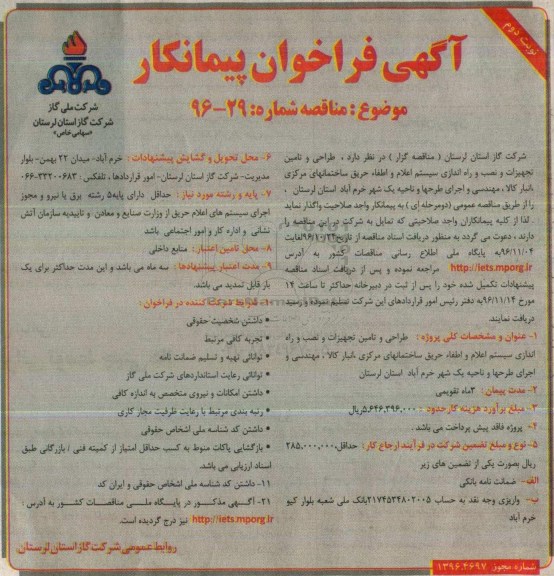 نوبت دوم
آگهی فراخوان پیمانکار
موضوع: مناقصه شماره: ۲۹-۹۶
شرکت ملی گاز
شرکت گاز استان لرستان
«سهامی خاص»
شرکت گاز استان لرستان ( مناقصه گزار ) در نظر دارد ، طراحی و تامین
تجهیزات و نصب و راه اندازی سیستم اعلام و اطفاء حریق ساختمانهای مرکزی
،انبار کالا ، مهندسی و اجرای طرحها و ناحیه یک شهر خرم آباد استان لرستان ،
را از طریق مناقصه عمومی (دومرحله ای ) به پیمانکار واجد صلاحیت واگذار نماید
. لذا از کلیه پیمانکاران واجد صلاحیتی که تمایل به شرکت در این مناقصه را
دارند ، دعوت می گردد به منظور دریافت اسناد مناقصه از تاریخ ۹۶/۱۰/۲۴ لغایت
۹۶/۱۱/۰۴ به پایگاه ملی اطلاع رسانی مناقصات کشور به آدرس
http://iets.mporg.ir مراجعه نموده و پس از دریافت اسناد مناقصه
پیشنهادات تکمیل شده خود را پس از ثبت در دبیرخانه حداکثر تا ساعت ۱۴
مورخ ۹۶/۱۱/۱۴ به دفتر رئیس امور قراردادهای این شرکت تسلیم نموده و رسید
دریافت نمایند.
۱- عنوان و مشخصات کلی پروژه : طراحی و تامین تجهیزات و نصب و راه
اندازی سیستم اعلام و اطفاء حریق ساختمانهای مرکزی ،انبار کالا ، مهندسی و
اجرای طرحها و ناحیه یک شهر خرم آباد استان لرستان
۲- مدت پیمان : ۳ماه تقویمی
۳- مبلغ برآورد هزینه کارحدود : ۵,۶۴۶,۳۹۶,۰۰۰ریال
۴- پروژه فاقد پیش پرداخت می باشد .
۵- نوع و مبلغ تضمین شرکت در فرآیند ارجاع کار: حداقل۲۸۵,۰۰۰,۰۰۰
ریال بصورت یکی از تضمین های زیر
الف- ضمانت نامه بانکی
ب- واریزی وجه نقد به حساب ۲۱۷۴۵۳۴۸۰۲۰۰۵بانک ملی شعبه بلوار کیو
خرم آباد
۶- محل تحویل و گشایش پیشنهادات : خرم آباد- میدان ۲۲ بهمن- بلوار
مدیریت- شرکت گاز استان لرستان- امور قراردادها ، تلفکس : ۰۶۶-۳۳۲۰۰۶۸۳
۷- پایه و رشته مورد نیاز : حداقل دارای پایه۵ رشته برق یا نیرو و مجوز
اجرای سیستم های اعلام حریق از وزارت صنایع و معادن و تاییدیه سازمان آتش
نشانی و اداره کار و امور اجتماعی باشد
۸- محل تامین اعتبار : منابع داخلی
۹- مدت اعتبار پیشنهادها : سه ماه می باشد و این مدت حداکثر برای یک
بار قابل تمدید می باشد.
۱۰- شرایط شرکت کننده در فراخوان :
• داشتن شخصیت حقوقی
• تجربه کافی مرتبط
• توانائی تهیه و تسلیم ضمانت نامه
• توانائی رعایت استانداردهای شرکت ملی گاز
• داشتن امکانات و نیروی متخصص به اندازه کافی
• رتبه بندی مرتبط با رعایت ظرفیت مجاز کاری
• داشتن کد شناسه ملی اشخاص حقوقی
• بازگشایی پاکات منوط به کسب حداقل امتیاز از کمیته فنی / بازرگانی طبق
اسناد ارزیابی می باشد.
۱۱- داشتن کد شناسه ملی اشخاص حقوقی و ایران کد
۲۱- آگهی مذکور در پایگاه ملی مناقصات کشور به آدرس :
http://iets.mporg.ir نیز درج گردیده است.
روابط عمومی شرکت گاز استان لرستان
شماره مجوز ۱۳۹۶.۴۶۹۷